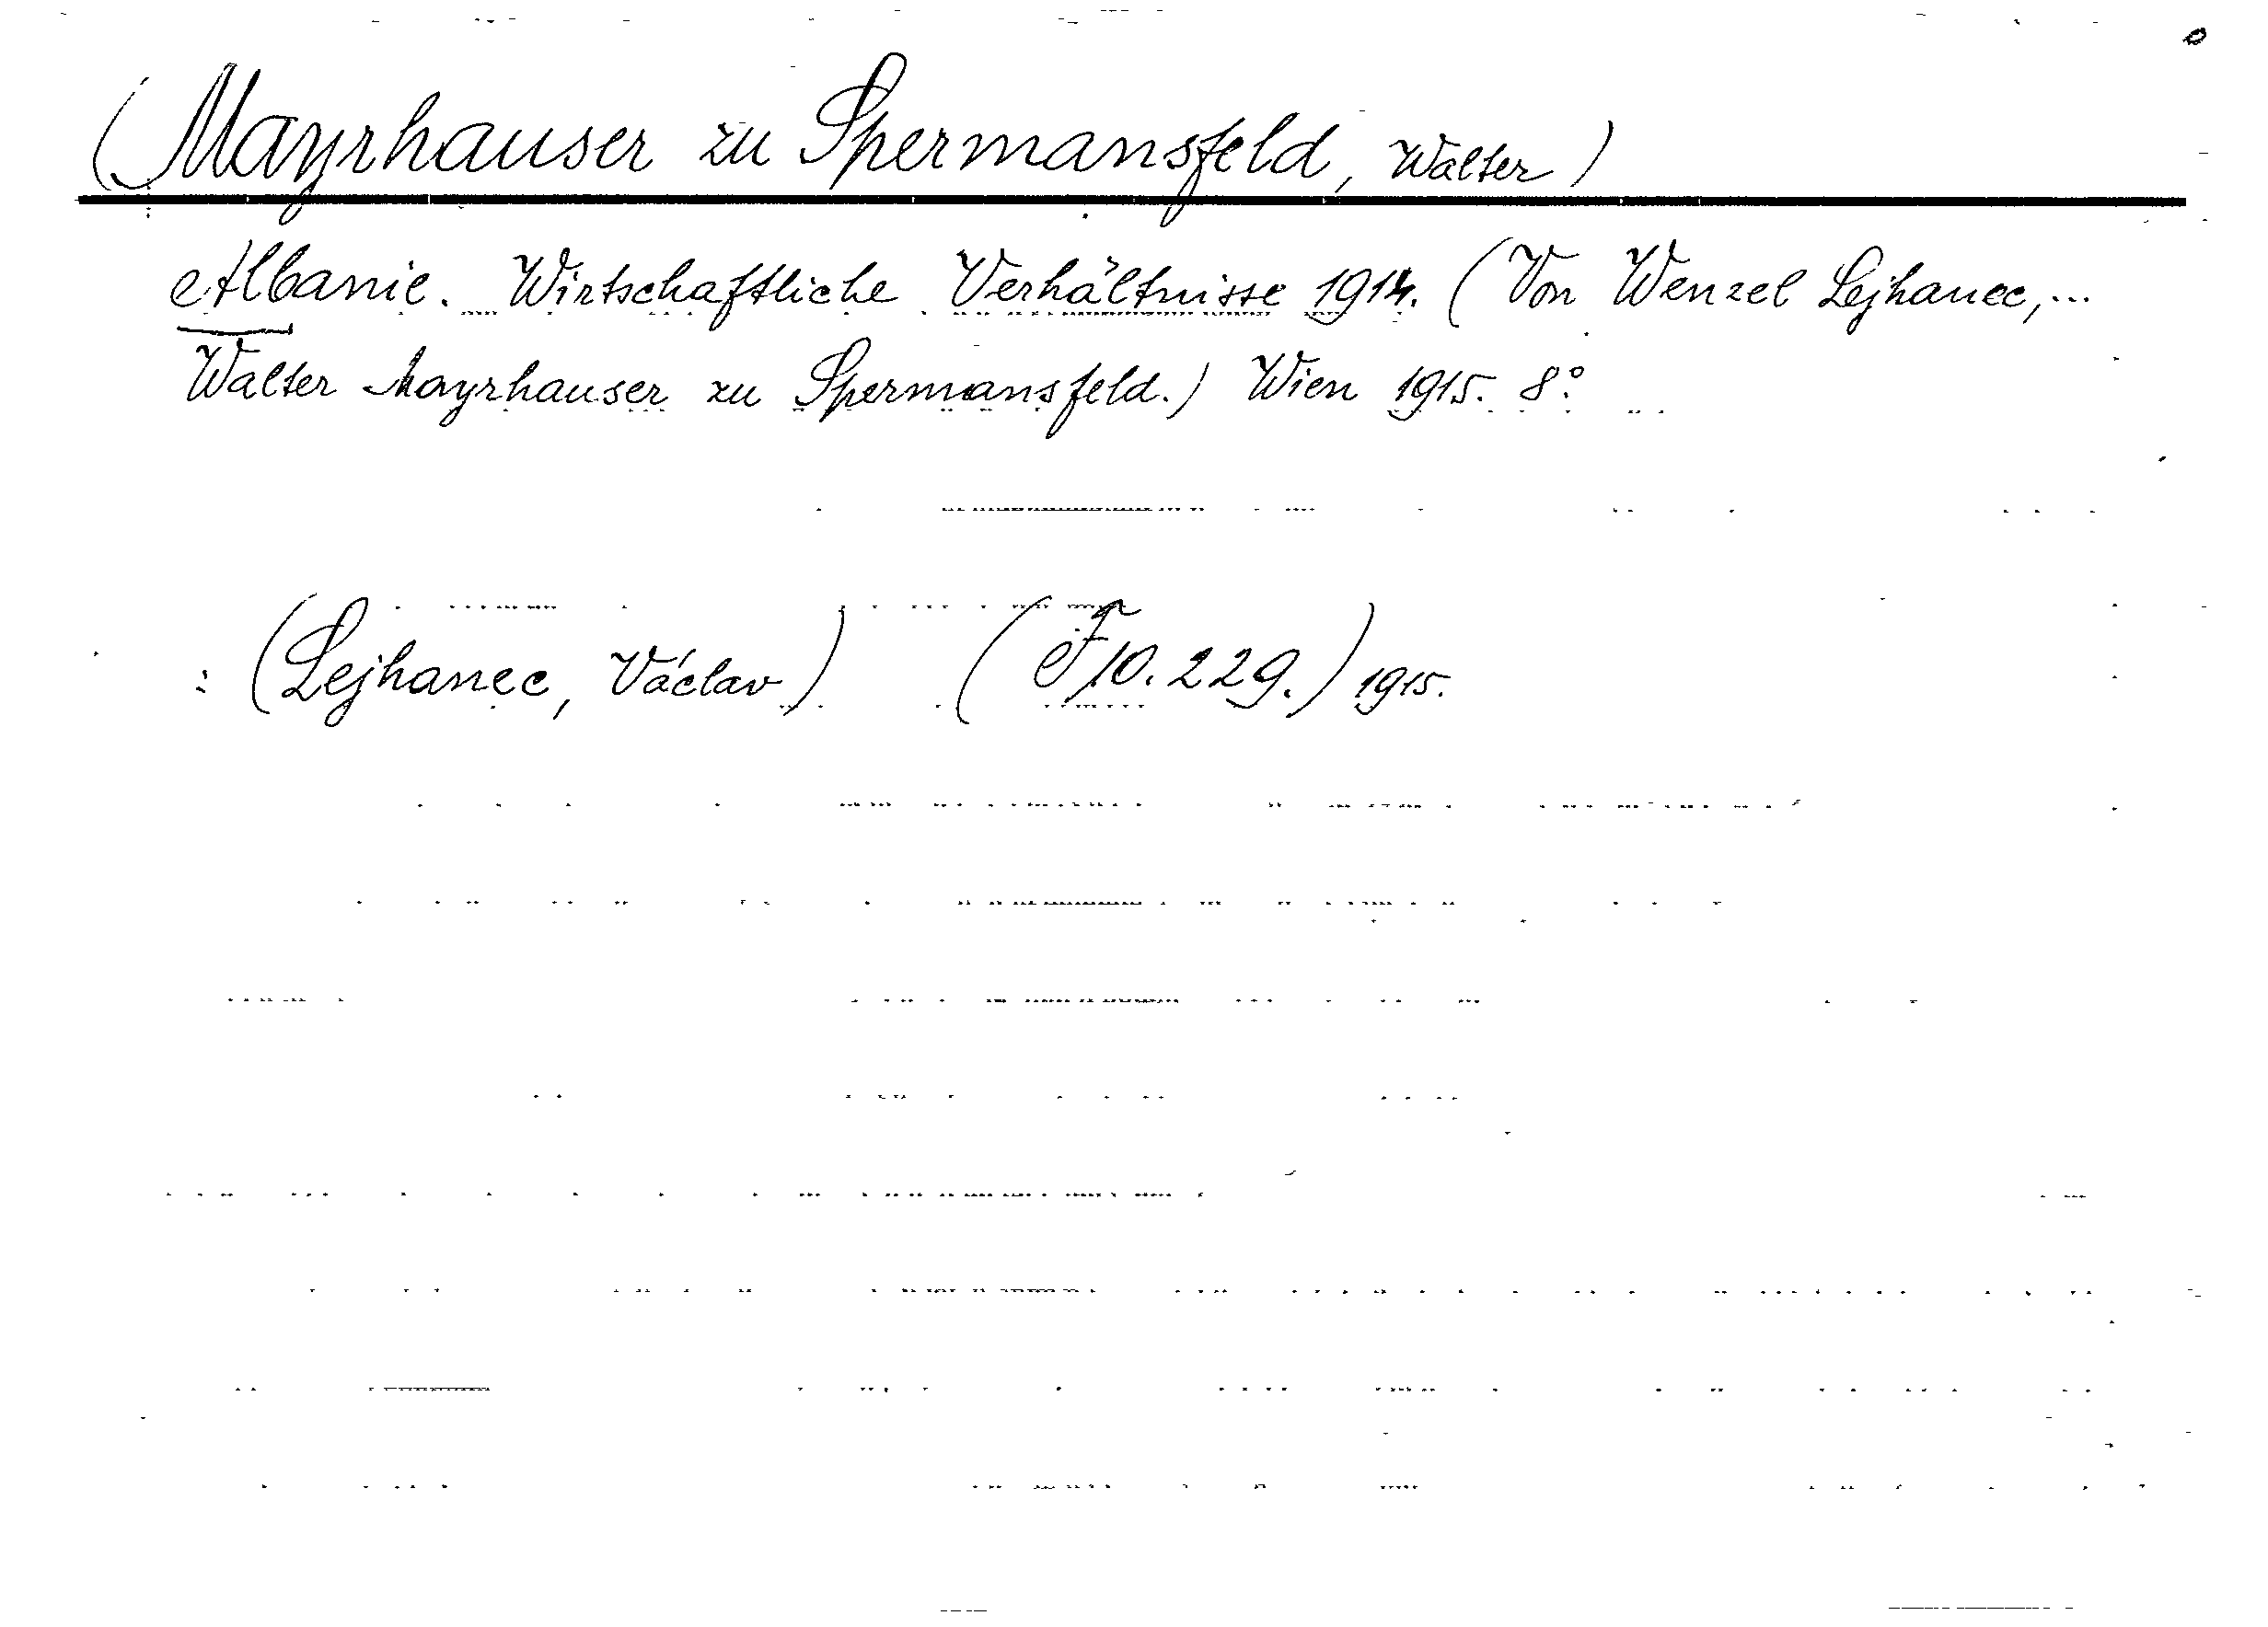 (Mayrhauser zu Spermansfeld, Walter)
Albanie. Wirtschaftliche Verhältnisse 1914. (Von Wenzel Lejhanec,...
Walter Mayrhauser zu Spermansfeld.) Wien 1915. 8°
: (Lejhanec, Václav) (F 10.229.) 1915.